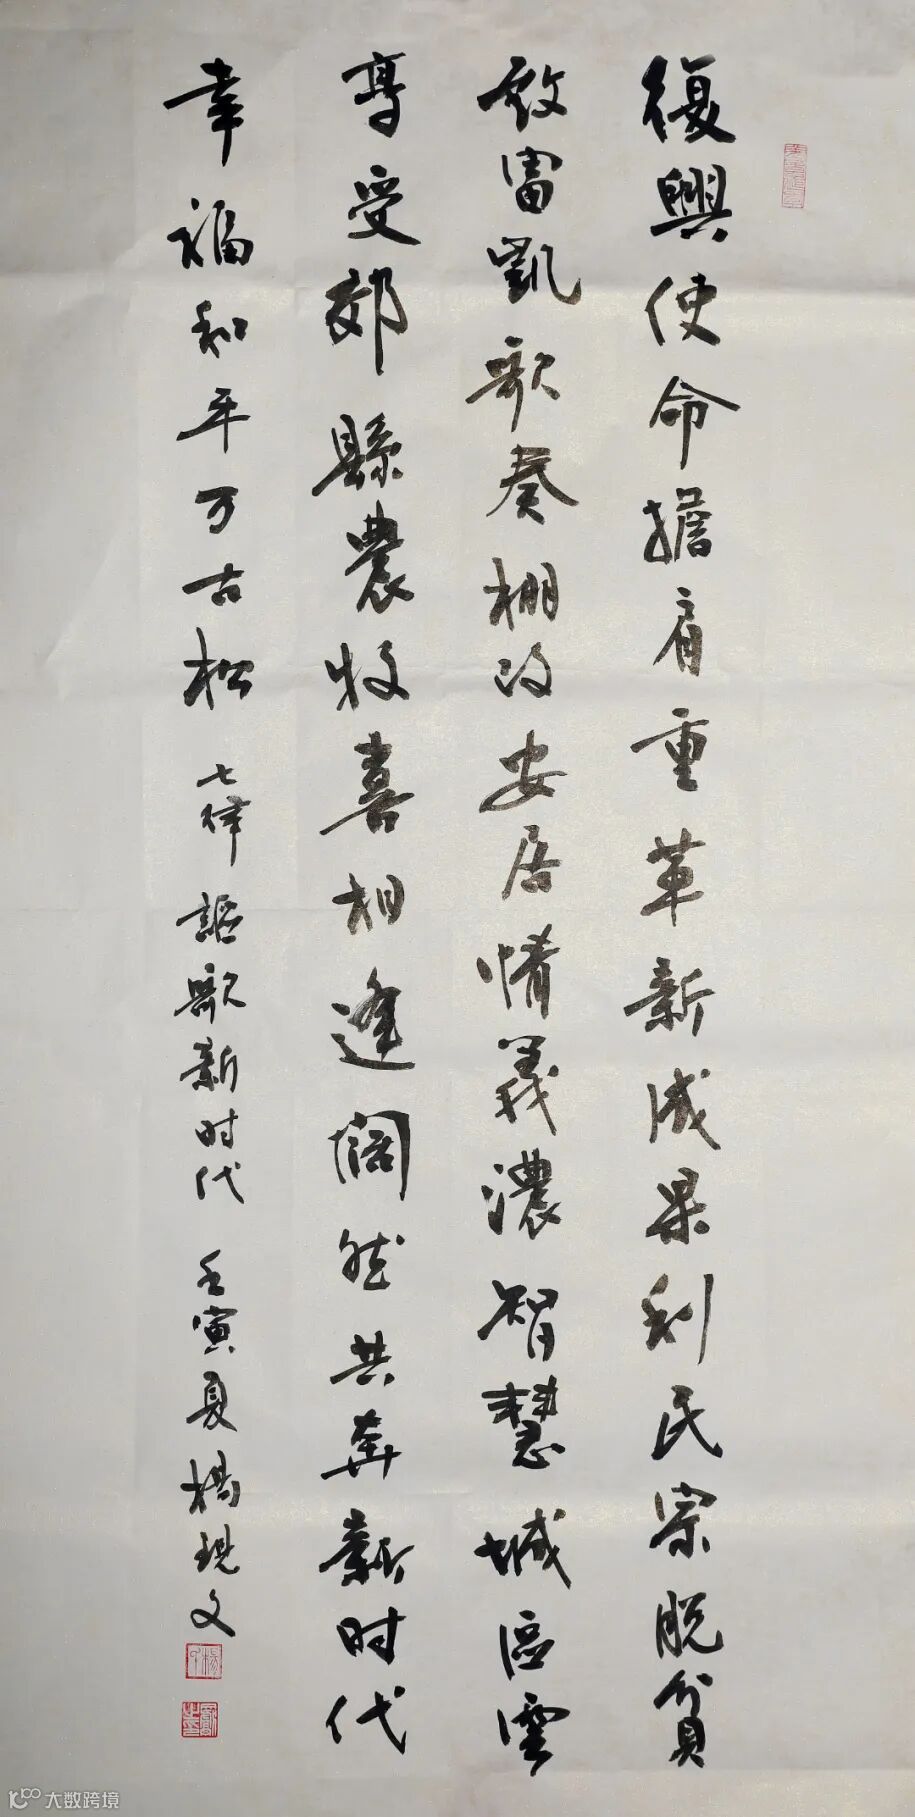 復興使命擔肩重革新成果利民宗脱貧
致富凱歌奏棚改安居情義濃智慧城區雲
享受郊縣農牧喜相逢闊然共奔新时代
幸福和平万古松 七律 謳歌新时代 壬寅夏楊現文
大数跨境